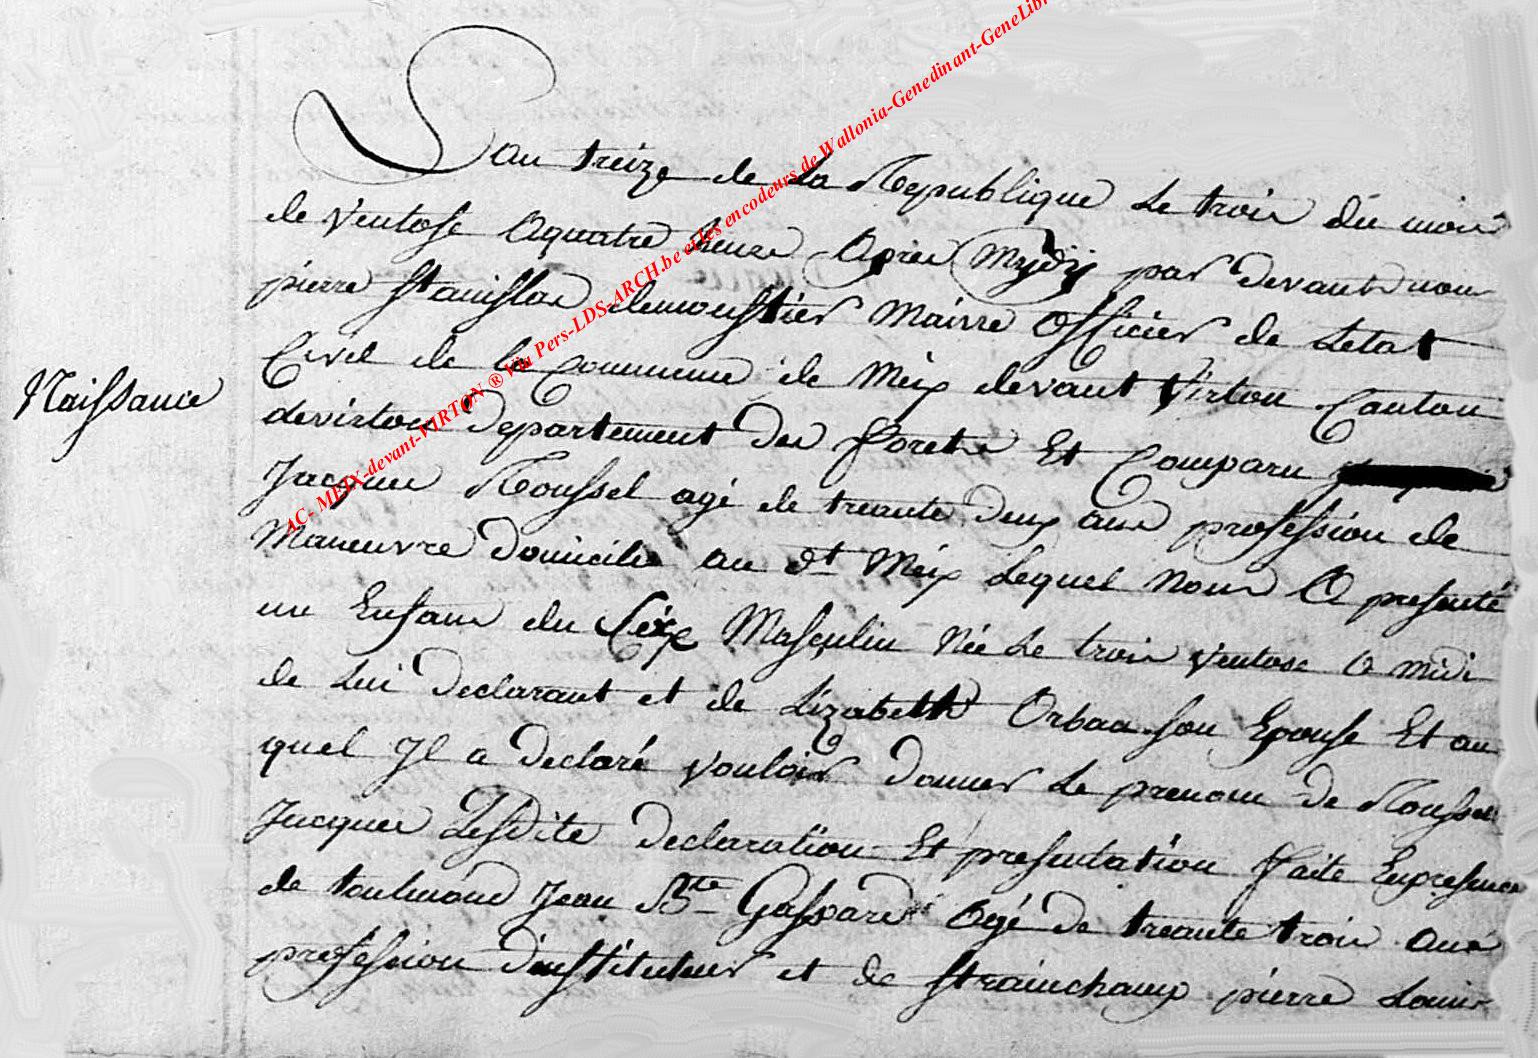 AC- MEIX-devant-VIRTON ® Via Pers-LDS-ARCH.be et les encodeurs de Wallonia-Genedinant-GeneLib
Naissance
Lan treize de La Republique Le trois du mois
de Ventose a quatre heure apres Mydij par devant nous
pierre stanislas demoustier Mairre officier de Letat
Civil de la Commune de Meix devant Virton Canton
devirton Departement des forets Et Comparu
Jacque Roussel agé de treante deux ans profession de
Maneuvre domicilié au dt Meix Lequel Nous a presenté
un Enfans du Séxe Masculin Née Le trois Ventose a midi
de Lui declarant et de Lizabeth Orban son Epouse Et au
quel Jl a declaré vouloir donner Le prenom de Roussel
Jacques Lesdite declaration Et presentation faite Enpresence
de toulmond Jean Bte Gaspard agé de treante trois ans
profession dinstituteur et de strainchamp pierre Louis